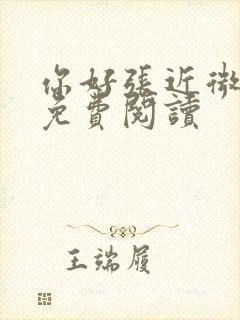 你好張近微
免費閱讀
王端履